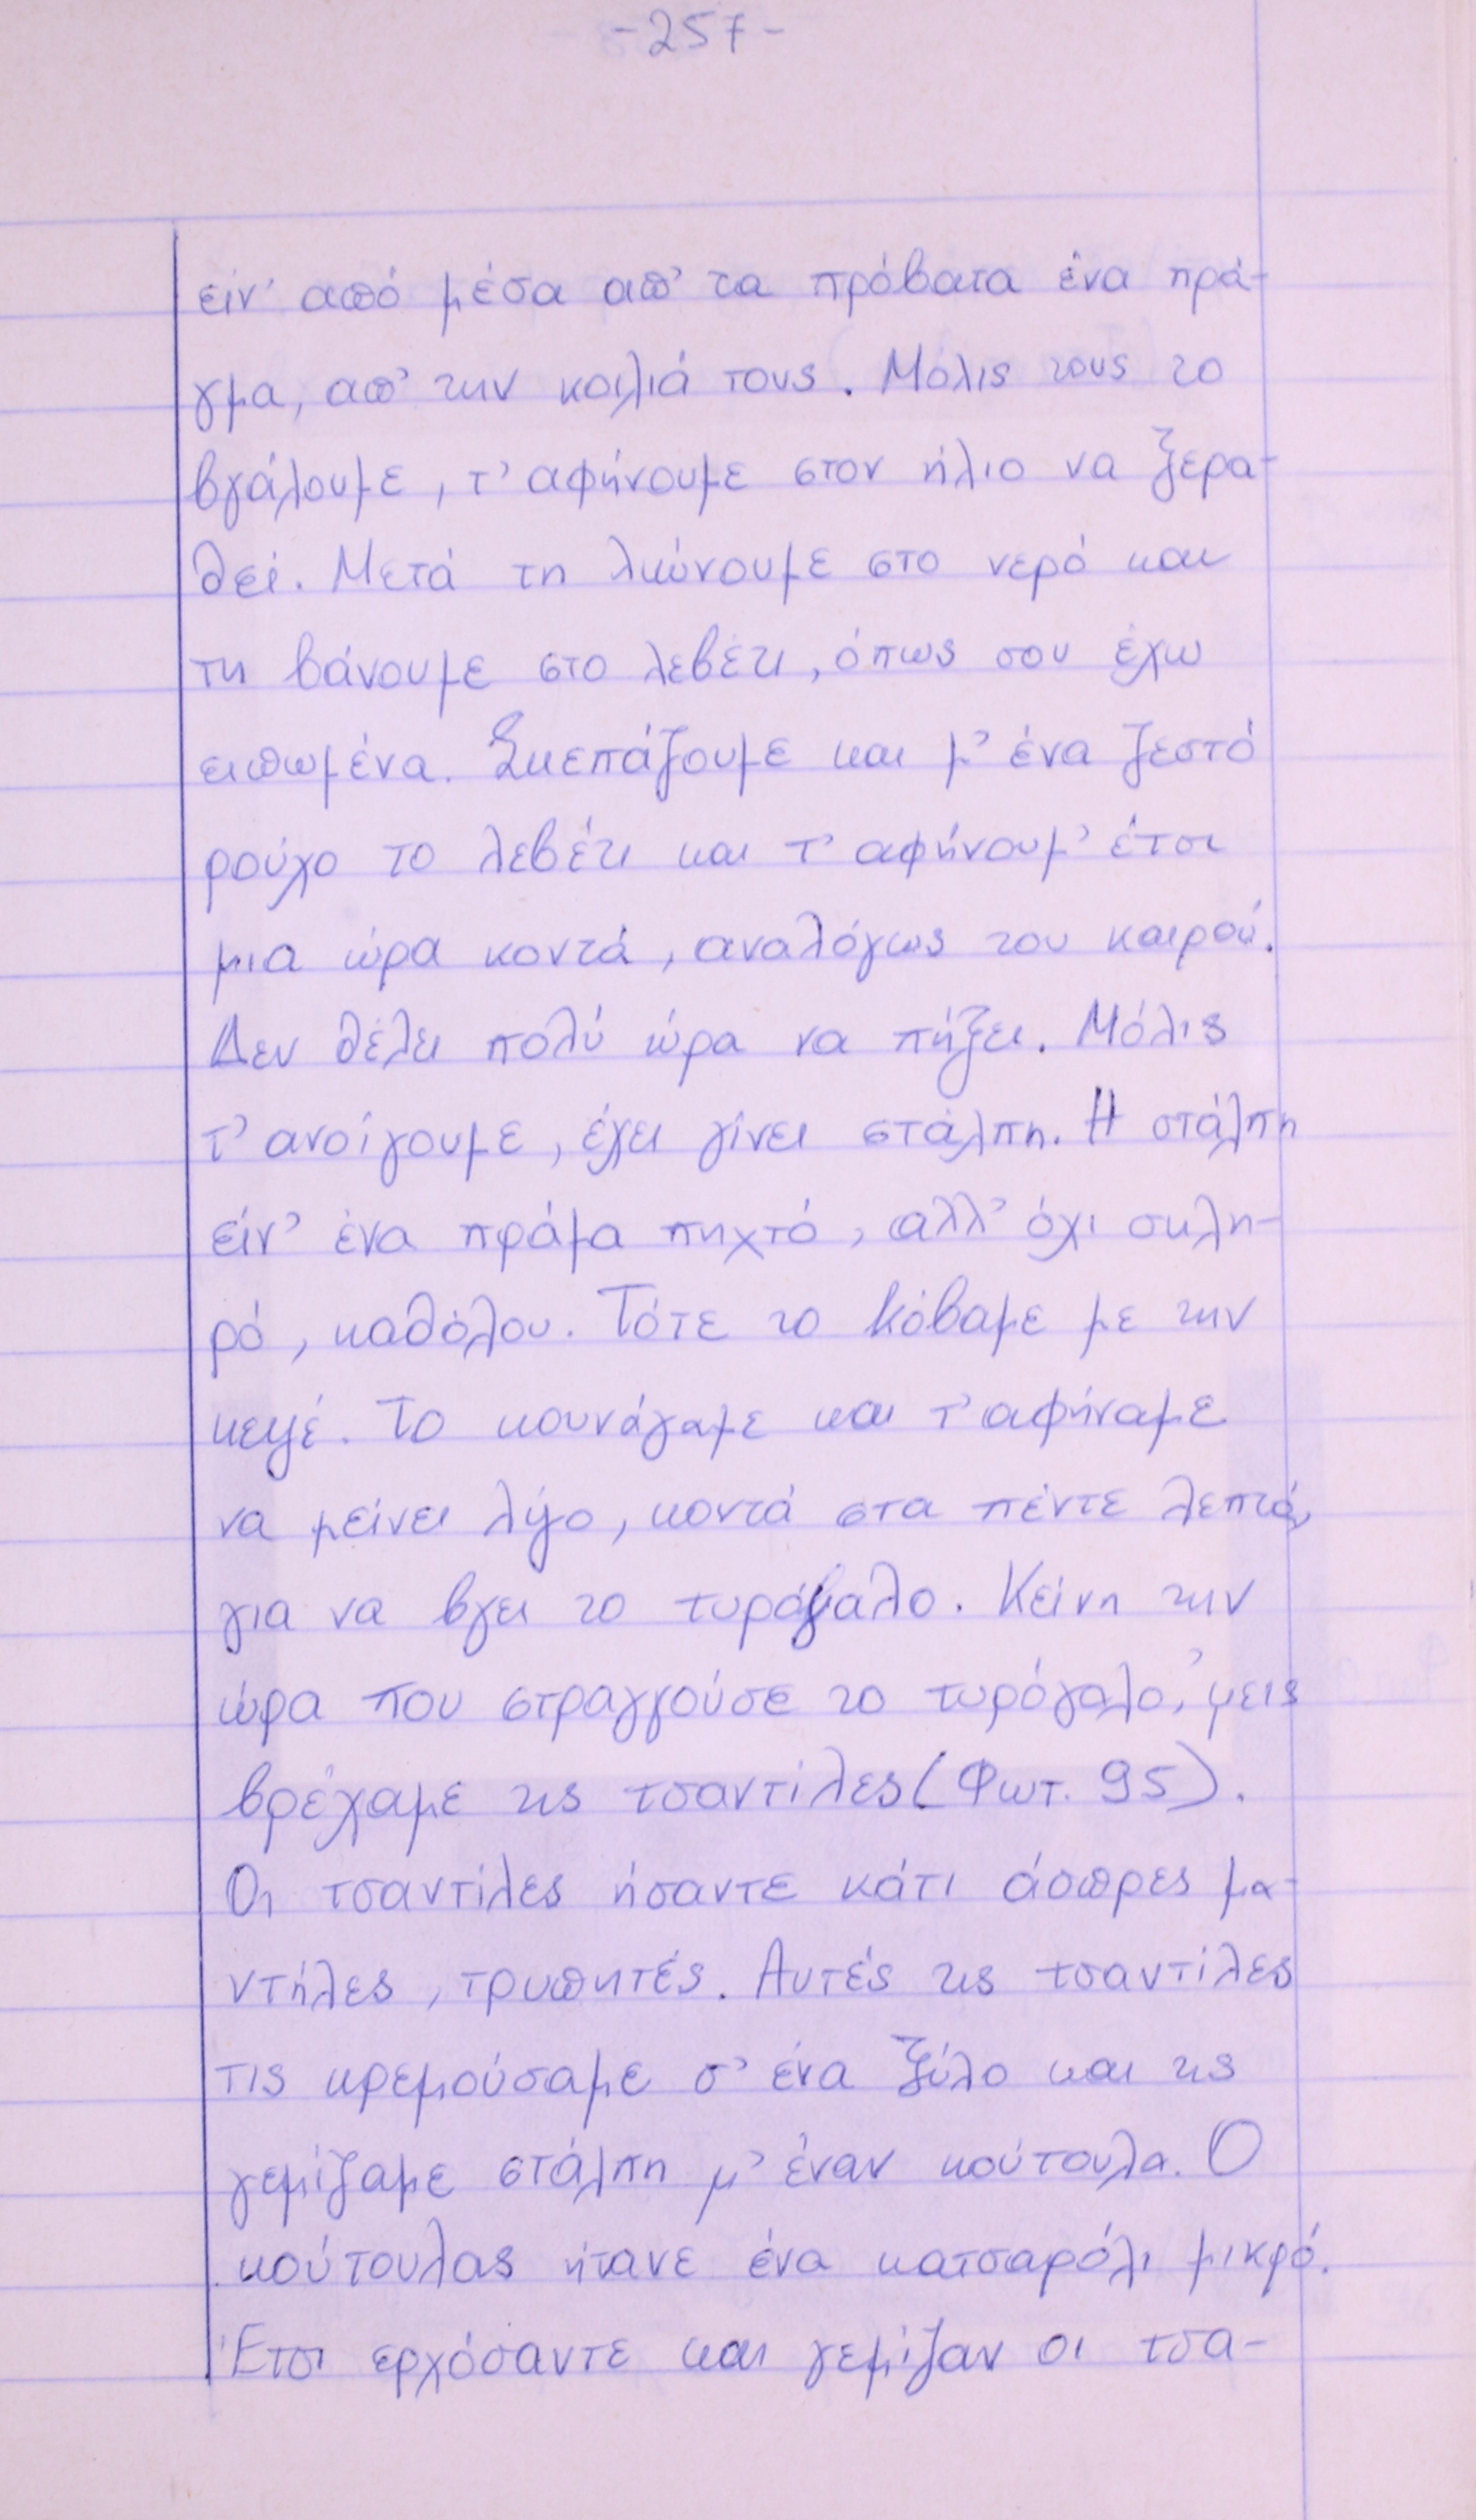 -257-
είν' από μέσα απ' τα πρόβατα ένα πρά-
γμα, απ' την κοιλιά τους. Μόλις τους το
βγάλουμε, τ' αφήνουμε στον ήλιο να ξερα-
θεί. Μετά τη λιώνουμε στο νερό και
τη βάνουμε στο λεβέτι, όπως σου έχω
ειπωμένα. Σκεπάζουμε και μ' ένα ζεστό
ρούχο το λεβέτι και τ' αφήνουμ' έτσι
μια ώρα κοντά, αναλόγως του καιρού.
Δεν θέλει πολύ ώρα να πήξει. Μόλις
τ' ανοίγουμε, έχει γίνει στάλπη. Η στάλπη
είν' ένα πράμα πηχτό, αλλ' όχι σκλη-
ρό, καθόλου. Τότε το κόβαμε με την
κεψέ. Το κουνάγαμε και τ' αφήναμε
να μείνει λίγο, κοντά στα πέντε λεπτά,
για να βγει το τυρόγαλο. Κείνη την
ώρα που στραγγούσε το τυρόγαλο, 'μεις
βρέχαμε τις τσαντίλες (Φωτ. 95).
Οι τσαντίλες ήσαντε κάτι άσπρες μα-
ντήλες, τρυπητές. Αυτές τις τσαντίλες
τις κρεμούσαμε σ' ένα ξύλο και τις
γεμίζαμε στάλπη μ' έναν κούτουλα. Ο
κούτουλας ήτανε ένα κατσαρόλι μικρό.
Έτσι ερχόσαντε και γεμίζαν οι τσα-